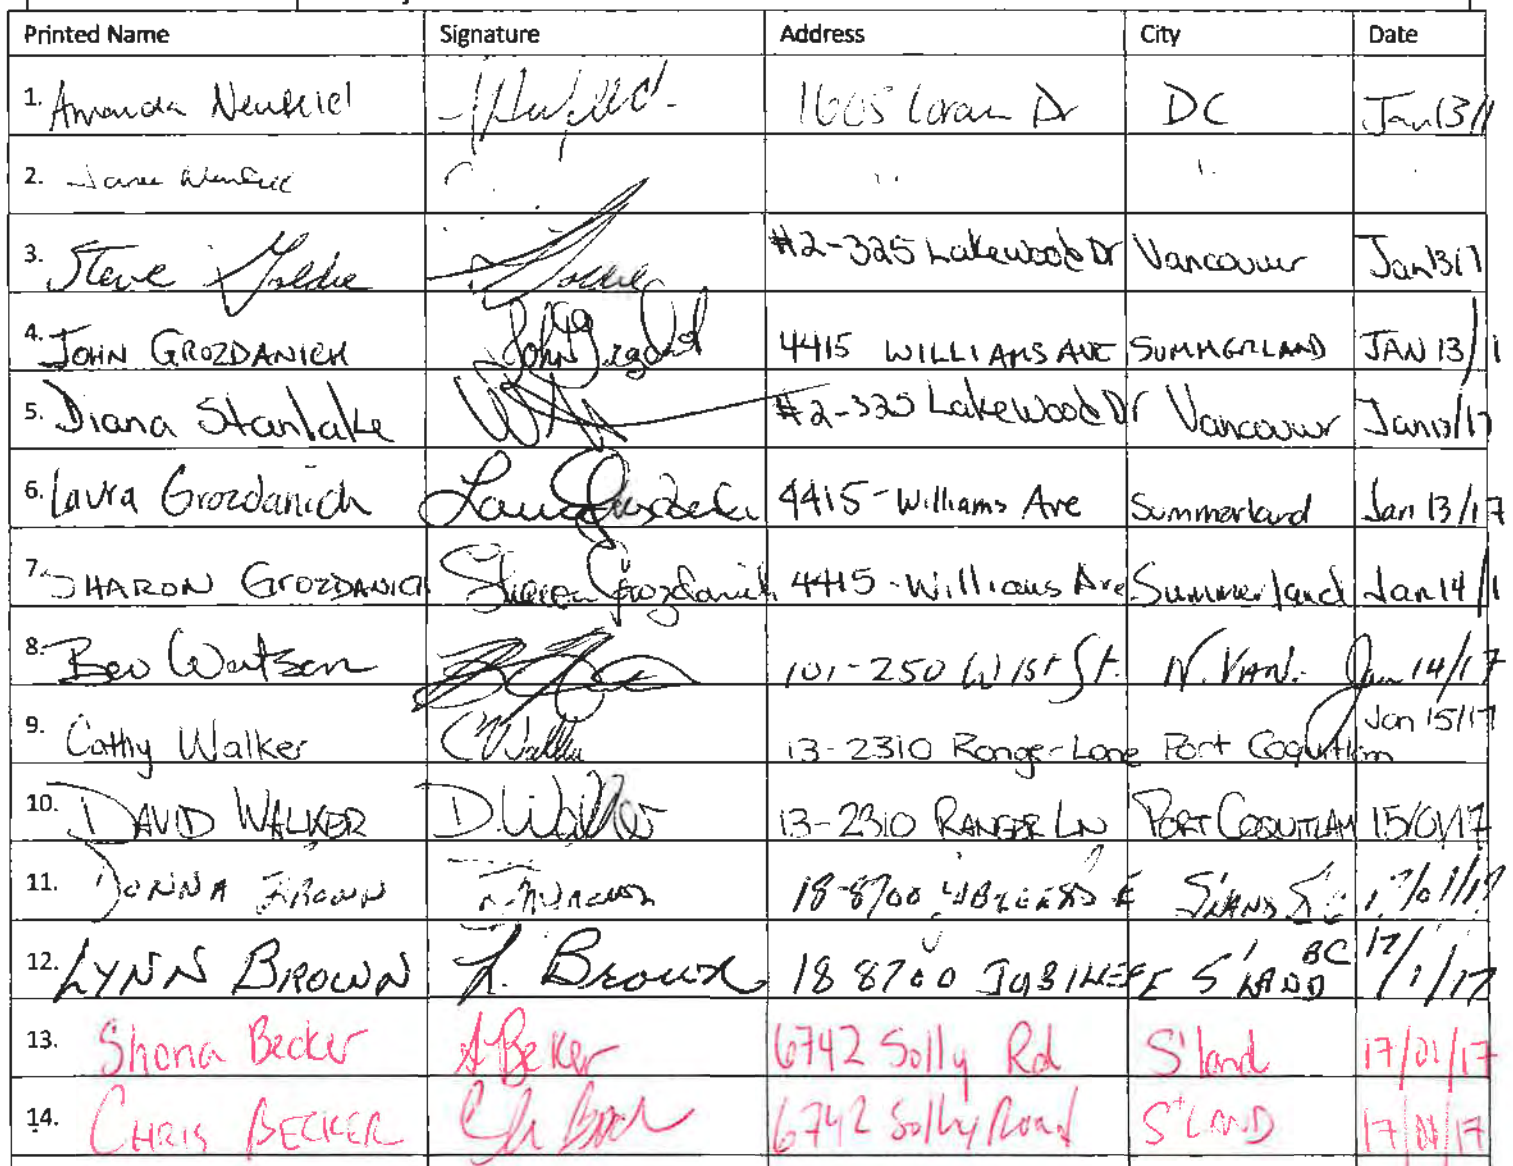 Printed Name Signature Address City Date
1. Amanda 1605 Loran Dr DC Jan 13/1
2.
3. Steve Goldie #2-325 Lakewood Dr Vancouver Jan 13/17
4. JOHN GROZDANICH John 4415 WILLIAMS AVE SUMMERLAND JAN 13/1
5. Diana Stanlake #2-325 Lakewood Dr Vancouver Jan 13/17
6. Laura Grozdanich 4415-Williams Ave Summerland Jan 13/17
7. SHARON GROZDANICH Sharon Grozdanich 4415-Williams Ave Summerland Jan 14/1
8. Bev Watson 101-250 W 1st St. N. VAN. Jan 14/17
9. Cathy Walker C Walker 13-2310 Ranger Lane Port Coquitlam Jan 15/17
10. DAVID WALKER D. Walker 13-2310 RANGER LN PORT COQUITLAM 15/01/17
11. DONNA BROWN 18-8700 17/01/17
12. LYNN BROWN L. Brown 18 8700 JUBILEE E S'LAND BC 17/1/17
13. Shona Becker S Becker 6742 Solly Rd S'land 17/01/17
14. CHRIS BECKER 6742 Solly Road S'LAND 17/01/17